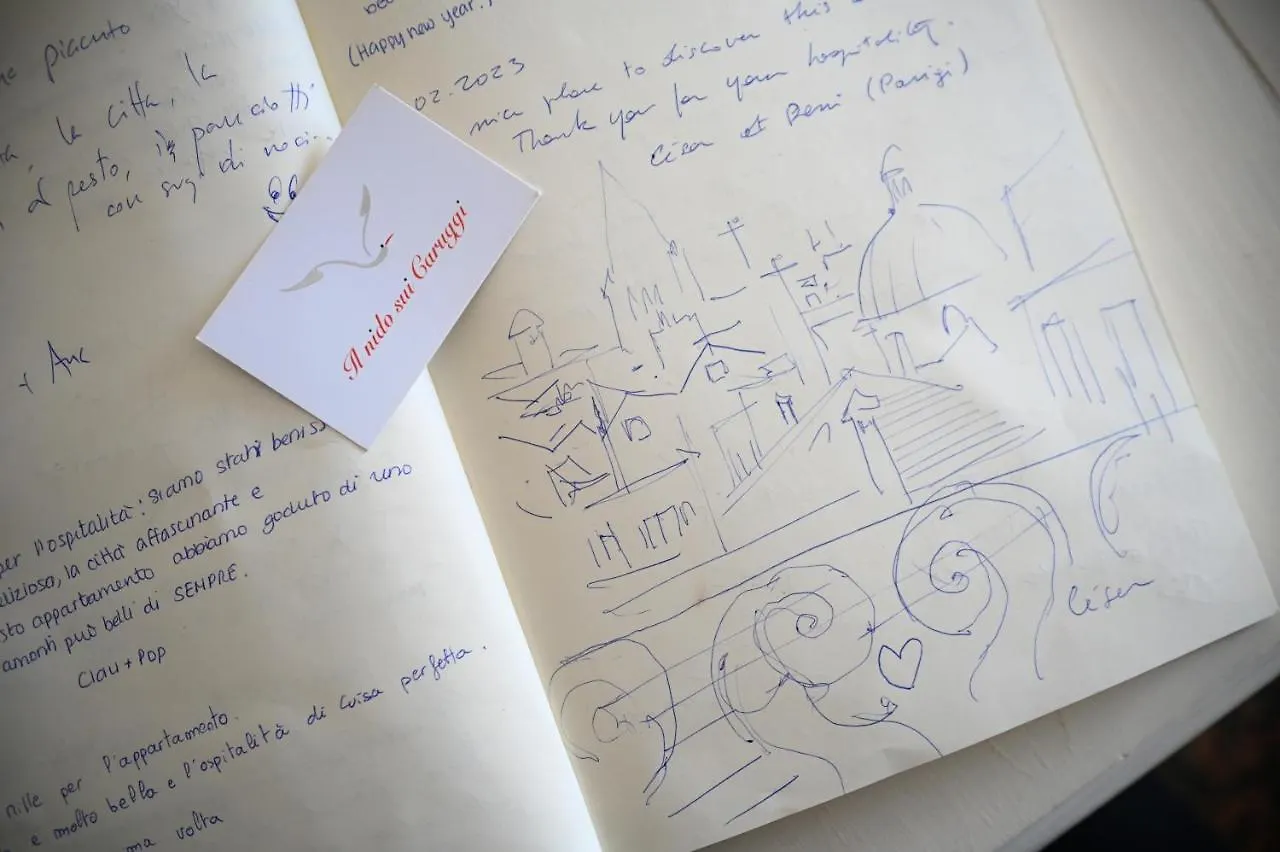 piaciuto
la città, la
pesto, i pansciotti
con sugo di noci...
+ Anc
per l'ospitalità: siamo stati beniss
elizioso, la città affascinante e
sto appartamento abbiamo goduto di uno
amonti più belli di SEMPRE.
Clau + Pop
mille per l'appartamento.
e molto bella e l'ospitalità di Luisa perfetta.
ma volta
Il nido sui Caruggi
(Happy new year!
02.2023
nice place to discover this
Thank you for your hospitality.
et (Parigi)